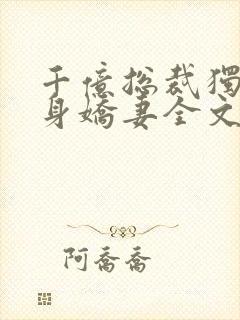 千億總裁獨
身嬌妻全文
阿喬喬